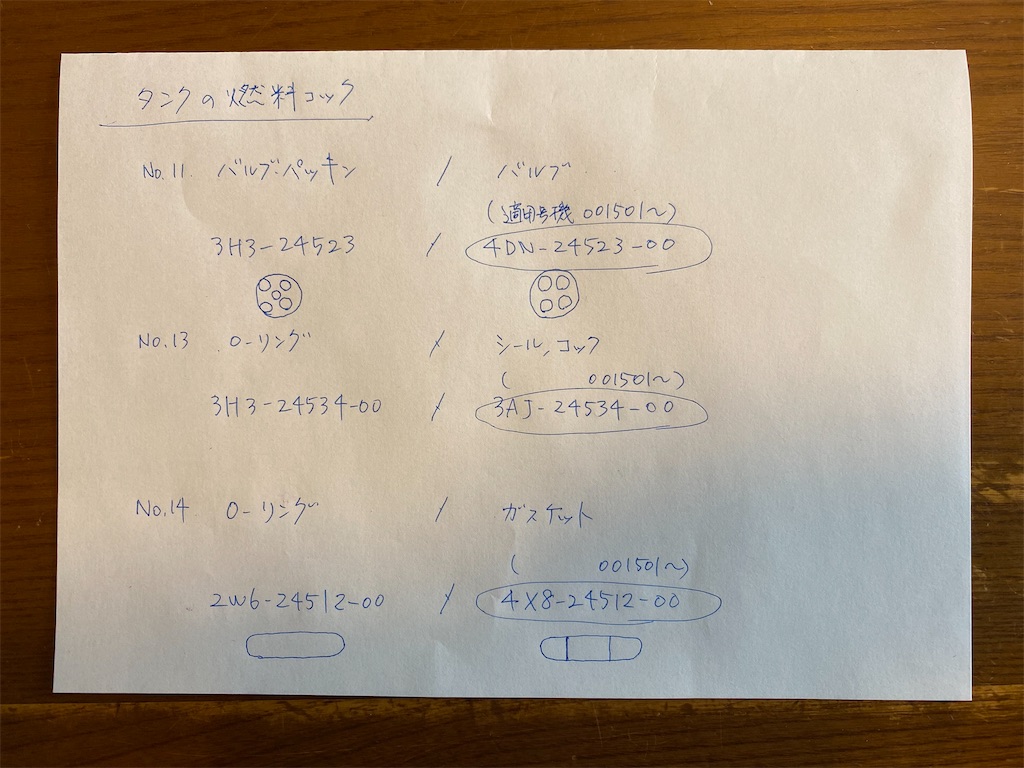 タンクの燃料コック
No.11 バルブ・パッキン / バルブ
(適用号機 001501~)
3H3-24523 / 4DN-24523-00
No.13 O-リング / シール,コック
( 001501~)
3H3-24534-00 / 3AJ-24534-00
No.14 O-リング / ガスケット
( 001501~)
2W6-24512-00 / 4X8-24512-00